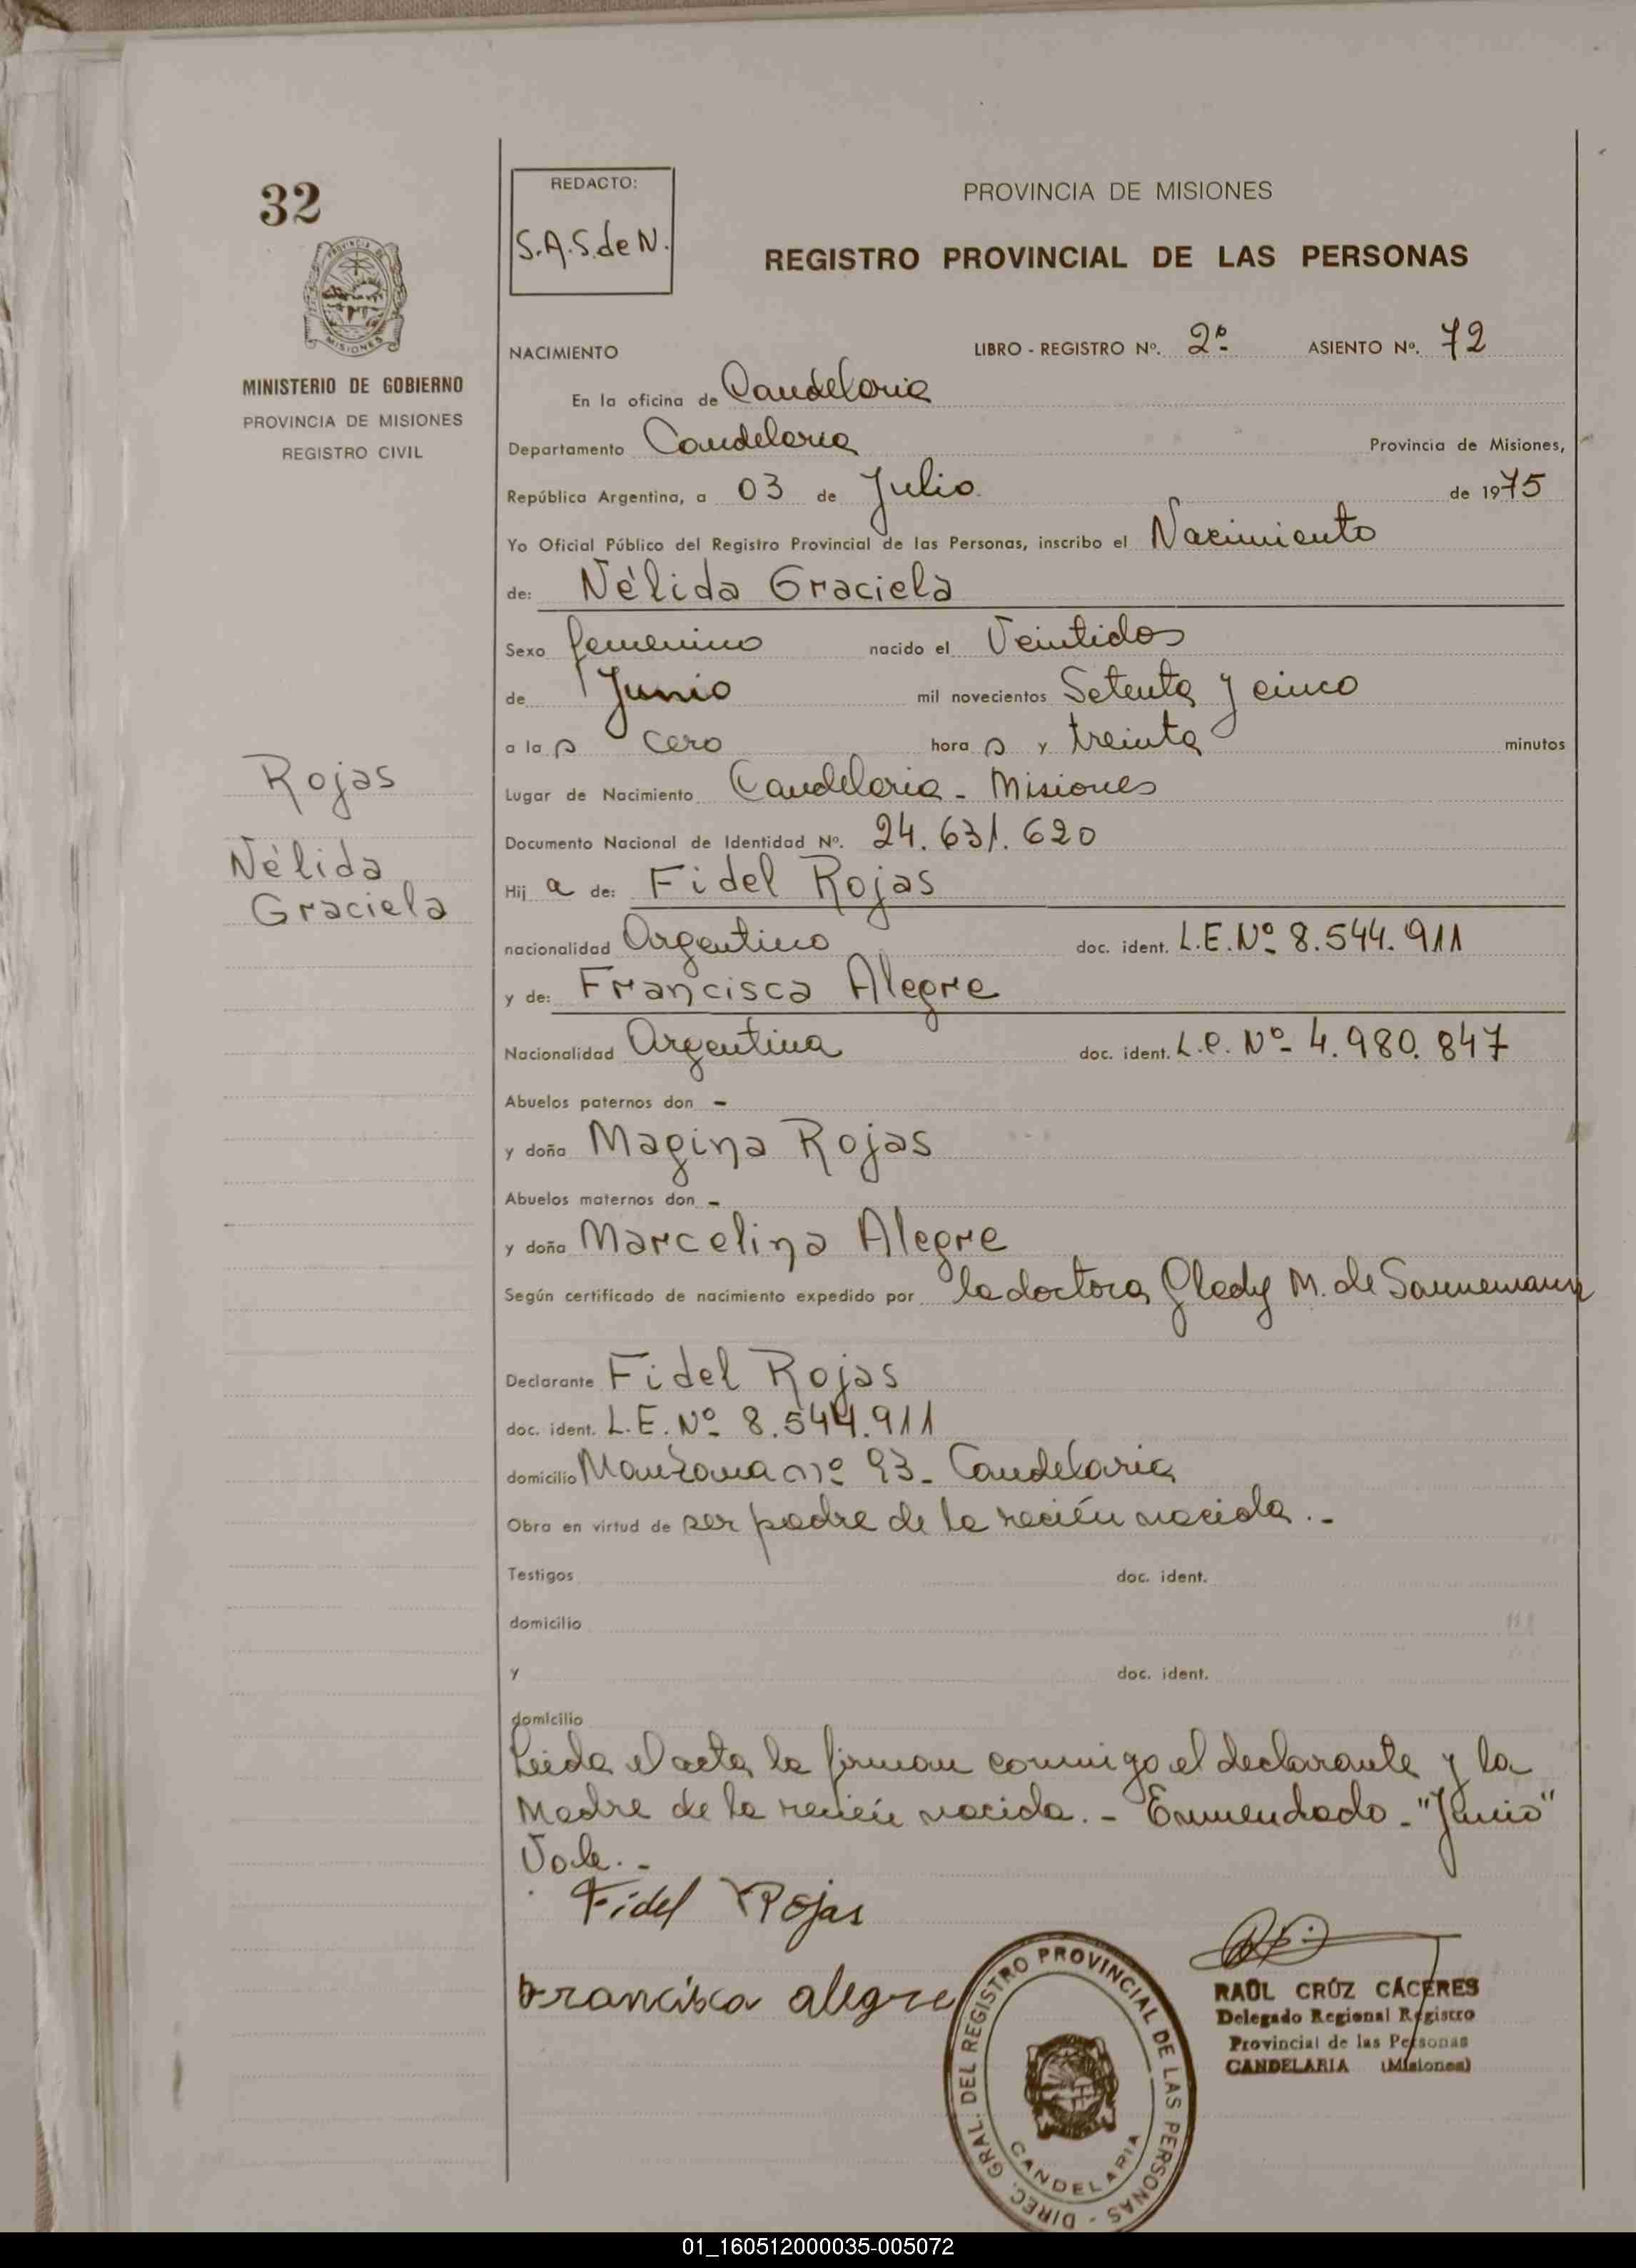 32
MINISTERIO DE GOBIERNO
PROVINCIA DE MISIONES
REGISTRO CIVIL
REDACTO:
S.A.S.deN.
PROVINCIA DE MISIONES
REGISTRO PROVINCIAL DE LAS PERSONAS
NACIMIENTO LIBRO - REGISTRO Nº. 2º ASIENTO Nº. 72
En la oficina de Candelaria
Departamento Candelaria Provincia de Misiones,
República Argentina, a 03 de Julio de 1975
Yo Oficial Público del Registro Provincial de las Personas, inscribo el Nacimiento
de: Nélida Graciela
Sexo femenino nacido el Veintidos
de Junio mil novecientos Setenta y cinco
a la s cero hora s y treinta minutos
Lugar de Nacimiento Candelaria - Misiones
Documento Nacional de Identidad Nº. 24.631.620
Hij a de: Fidel Rojas
nacionalidad Argentino doc. ident. L.E.Nº 8.544.911
y de: Francisca Alegre
Nacionalidad Argentina doc. ident. L.C. Nº 4.980.847
Abuelos paternos don -
y doña Magina Rojas
Abuelos maternos don -
y doña Marcelina Alegre
Según certificado de nacimiento expedido por la doctora Glady M. de Sannemann
Declarante Fidel Rojas
doc. ident. L.E. Nº 8.544.911
domicilio Manzana nº 93- Candelaria
Obra en virtud de ser padre de la recién nacida.-
Testigos doc. ident.
domicilio
y doc. ident.
domicilio
Leida el acta, la firman conmigo el declarante y la
Madre de la recién nacida.- Enmendado-"Junio"
Vale.-
Fidel Rojas
Francisca alegre
Rojas
Nélida
Graciela
DIREC. GRAL. DEL REGISTRO PROVINCIAL DE LAS PERSONAS -
CANDELARIA
RAÚL CRÚZ CÁCERES
Delegado Regional Registro
Provincial de las Personas
CANDELARIA (Misiones)
01_160512000035-005072